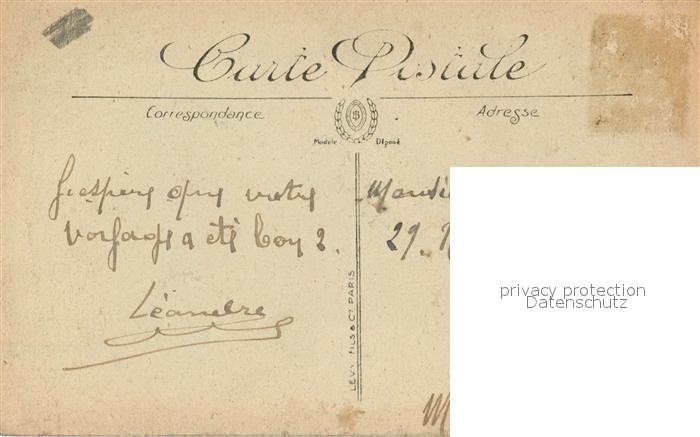 Carte Postale
Correspondance
Adresse
Modèle Déposé
J'espère que votre
voyage a été bon ?.
Léandre
29.
LEVY FILS & Cie PARIS
M
privacy protection
Datenschutz